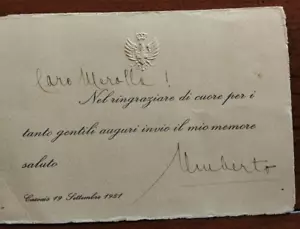 Caro Merolla !
Nel ringraziare di cuore per i
tanto gentili auguri invio il mio memore
saluto
Umberto
Cascais 19 Settembre 1981